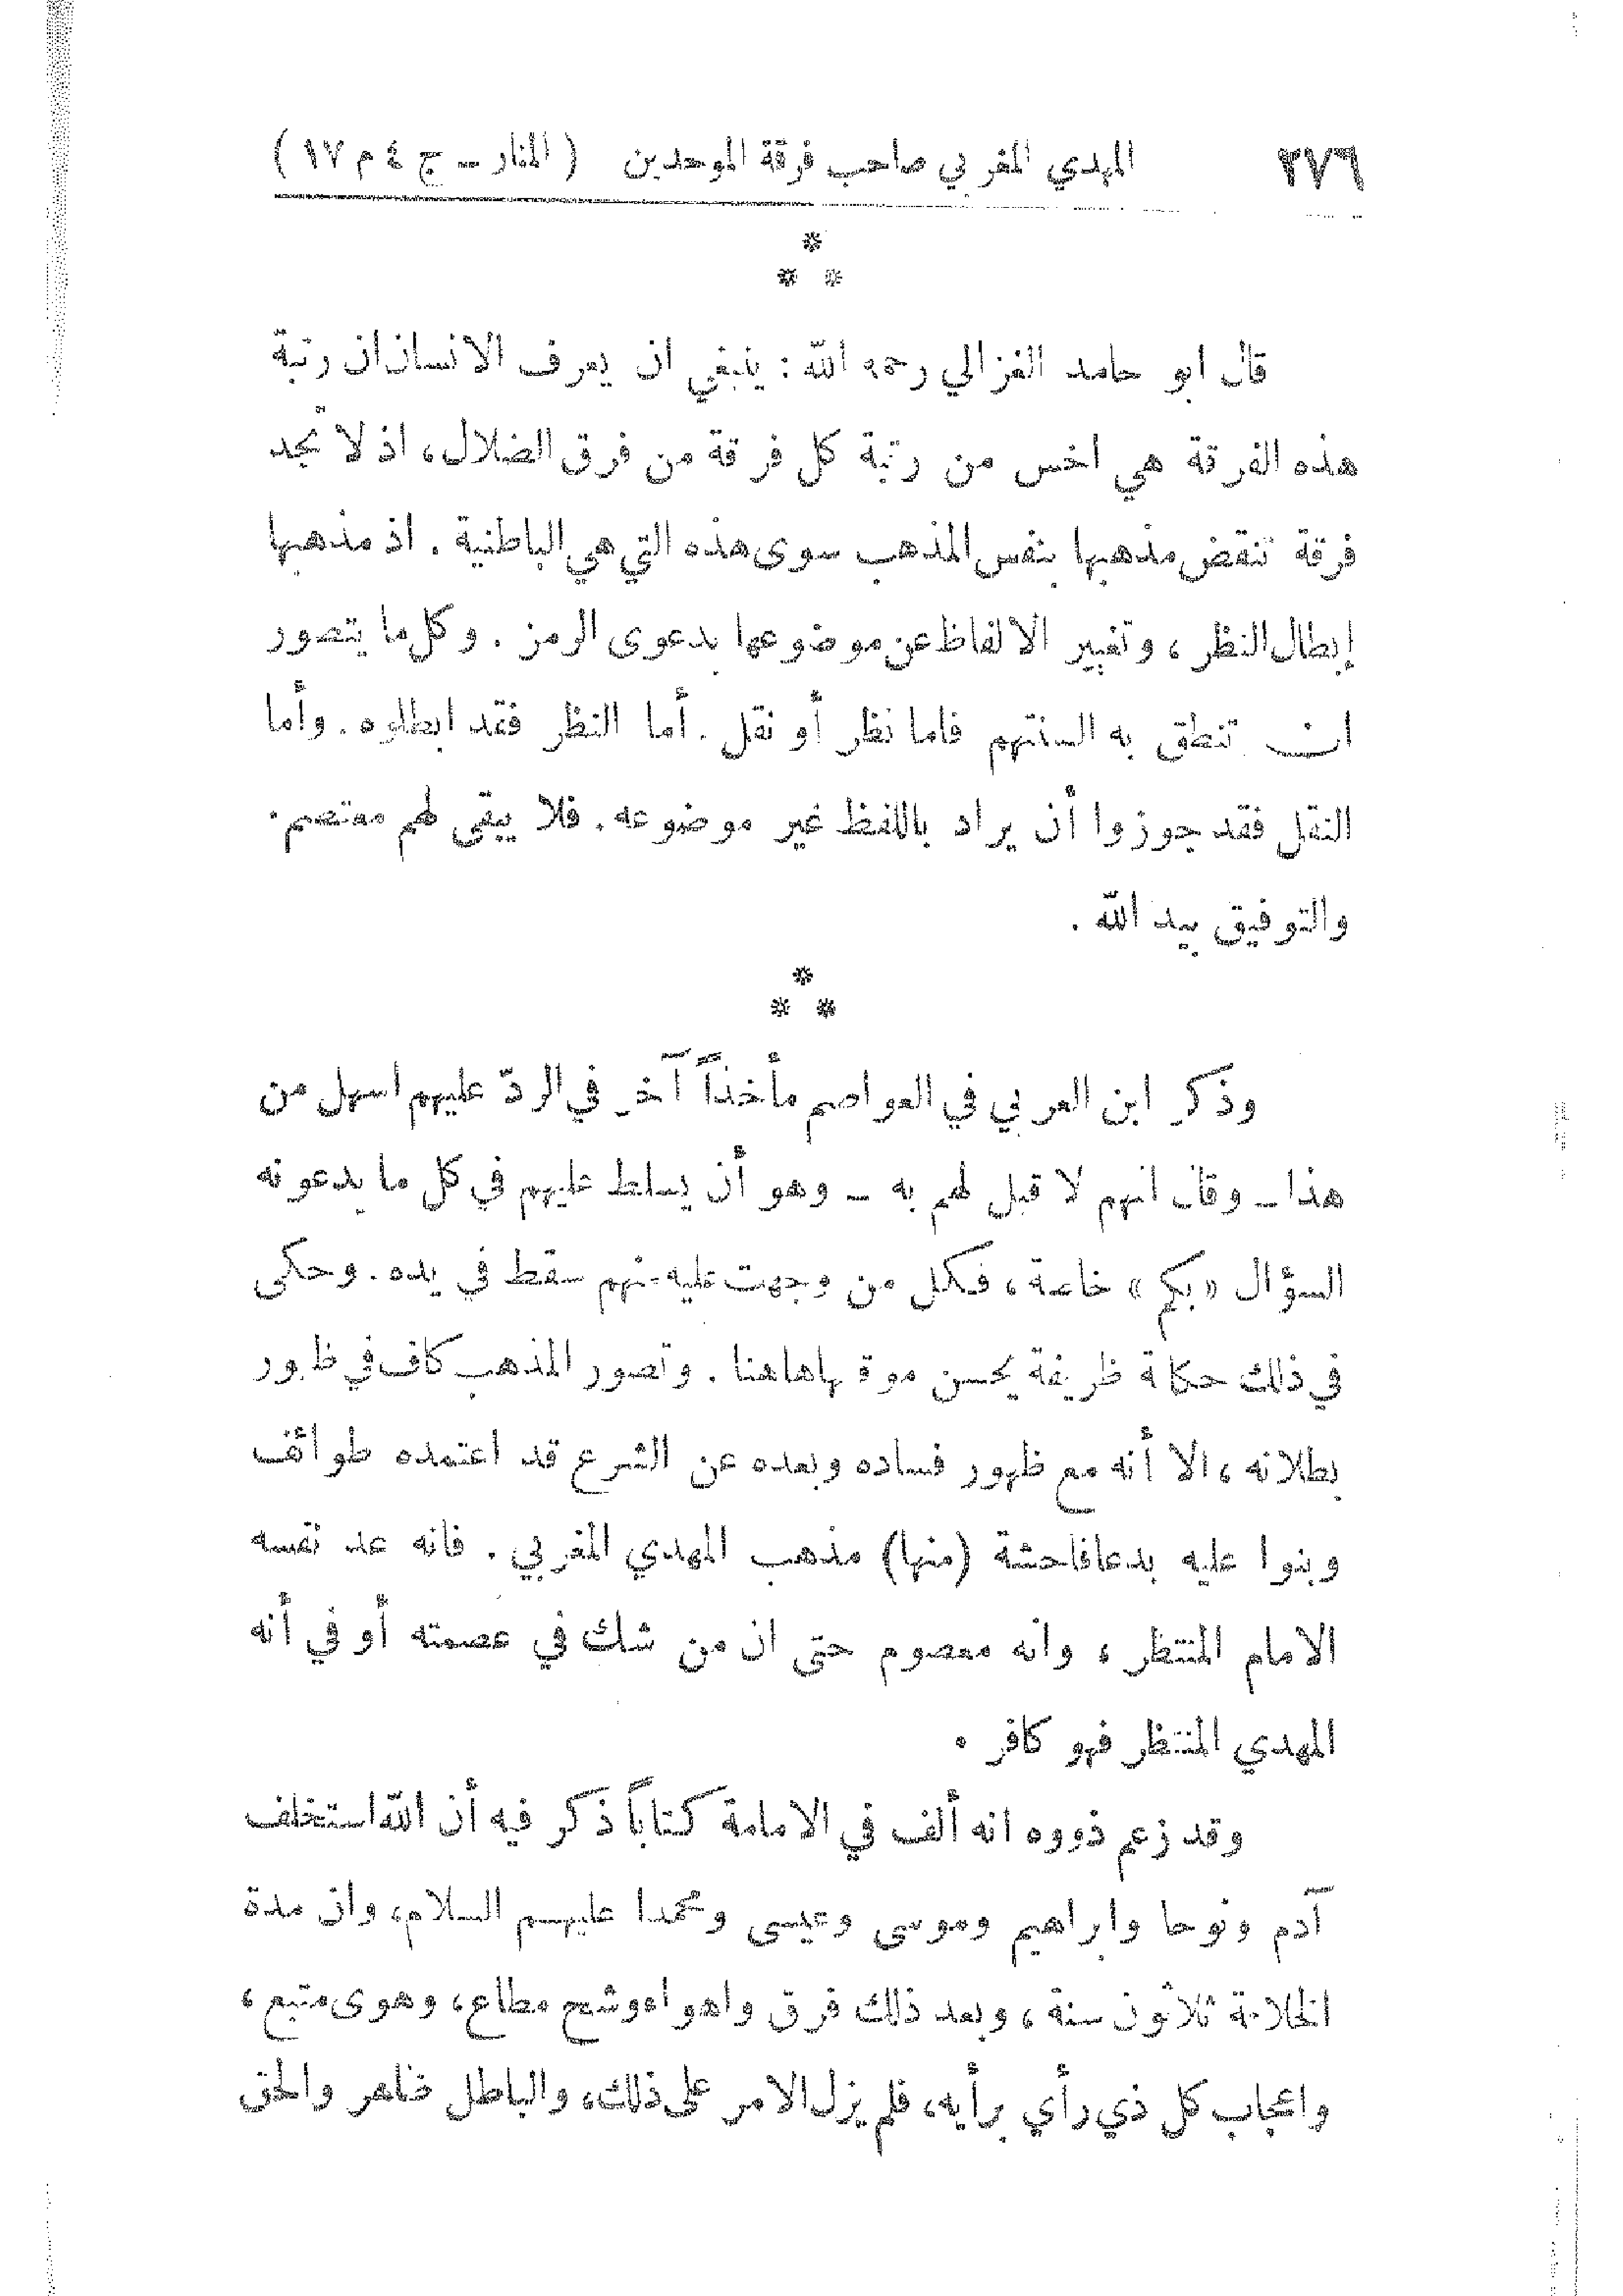 ٢٧٦ المهدي المغربي صاحب فرقة الموحدين ( المنار ــ ج ٤ م ١٧ )
*
* *
قال ابو حامد الغزالي رحمه الله : ينبغي ان يعرف الانسان ان رتبة
هذه الفرقة هي اخس من رتبة كل فرقة من فرق الضلال، اذ لا تجد
فرقة تنقض مذهبها بنفس المذهب سوى هذه التي هي الباطنية . اذ مذهبها
إبطال النظر ، وتغيير الالفاظ عن موضوعها بدعوى الرمز . وكل ما يتصور
ان تنطق به السنتهم فاما نظر أو نقل . أما النظر فقد ابطلوه . وأما
النقل فقد جوزوا أن يراد باللفظ غير موضوعه . فلا يبقى لهم معتصم .
والتوفيق بيد الله .
*
* *
وذكر ابن العربي في العواصم مأخذاً آخر في الردّ عليهم اسهل من
هذا ــ وقال انهم لا قبل لهم به ــ وهو أن يسلط عليهم في كل ما يدعونه
السؤال «بكم» خاصة ، فكل من وجهت عليه منهم سقط في يده . وحكى
في ذلك حكاة ظريفة يحسن موقعها هاهنا . وتصور المذهب كاف في ظهور
بطلانه ، الا أنه مع ظهور فساده وبعده عن الشرع قد اعتمده طوائف
وبنوا عليه بدعا فاحشة (منها) مذهب المهدي المغربي . فانه عد نفسه
الامام المنتظر ، وانه معصوم حتى ان من شك في عصمته أو في أنه
المهدي المنتظر فهو كافر .
وقد زعم ذووه انه ألف في الامامة كتاباً ذكر فيه أن الله استخلف
آدم ونوحا وابراهيم وموسى وعيسى ومحمدا عليهم السلام ، وان مدة
الخلافة ثلاثون سنة ، وبعد ذلك فرق واهواء وشح مطاع ، وهوى متبع ،
واعجاب كل ذي رأي برأيه ، فلم يزل الامر على ذلك ، والباطل ظاهر والحق